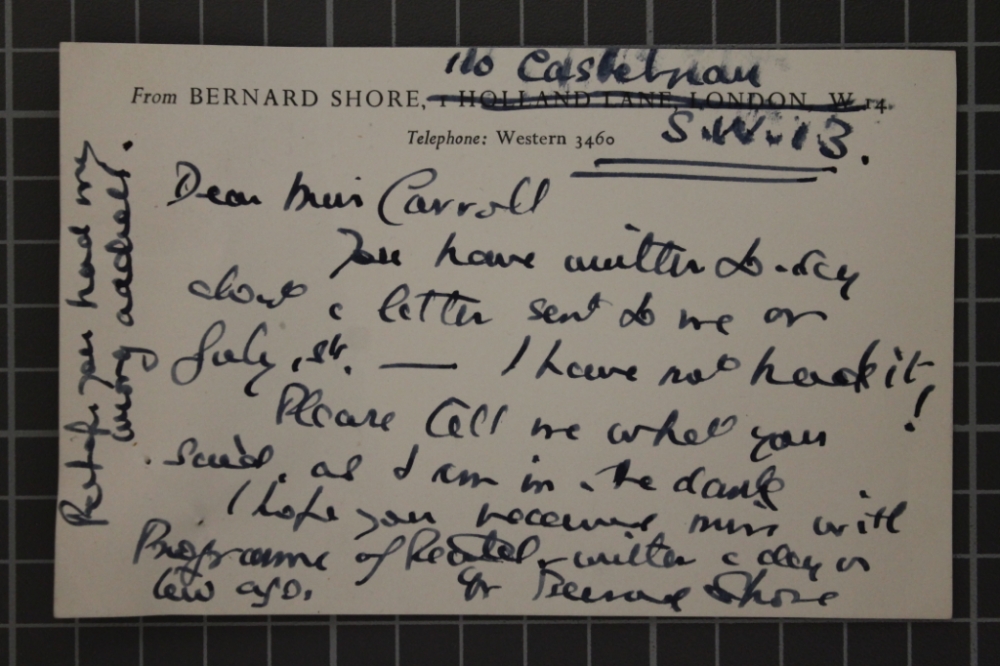 110 Castelnau
From BERNARD SHORE, 1 HOLLAND LANE, LONDON, W.14.
S.W.13.
Telephone: Western 3460
Dear Miss Carroll
You have written to-day
about a letter sent to me on
July 1st. — I have not had it!
Please tell me what you
said, as I am in the dark
I hope you received mine with
Programme of Recital, written a day or
two ago. Yr Bernard Shore
Perhaps you had my
wrong address.